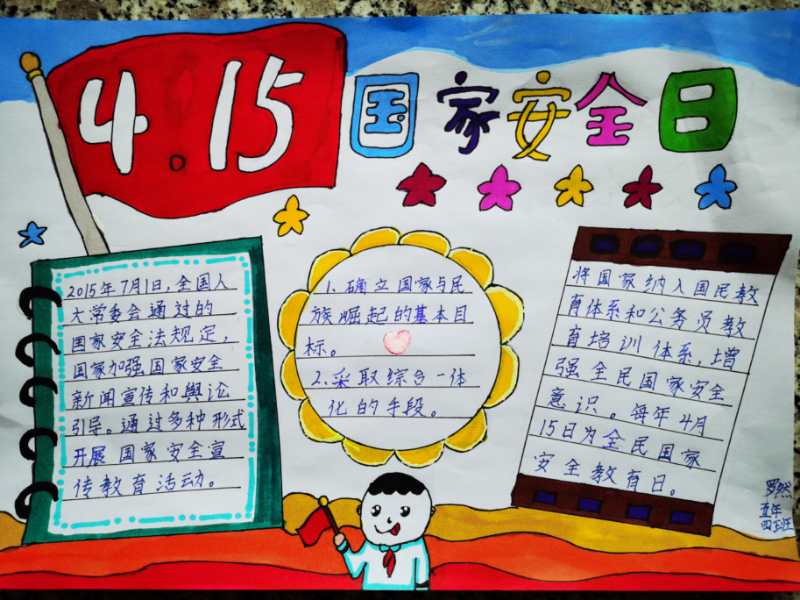 4.15
国家安全日
2015年7月1日,全国人
大常委会通过的
国家安全法规定,
国家加强国家安全
新闻宣传和舆论
引导。通过多种形式
开展国家安全宣
传教育活动。
1、确立国家与民
族崛起的基本目
标。
2、采取综合一体
化的手段。
将国家纳入国民教
育体系和公务员教
育培训体系,增
强全民国家安全
意识。每年4月
15日为全民国家
安全教育日。
罗然
五年
四班